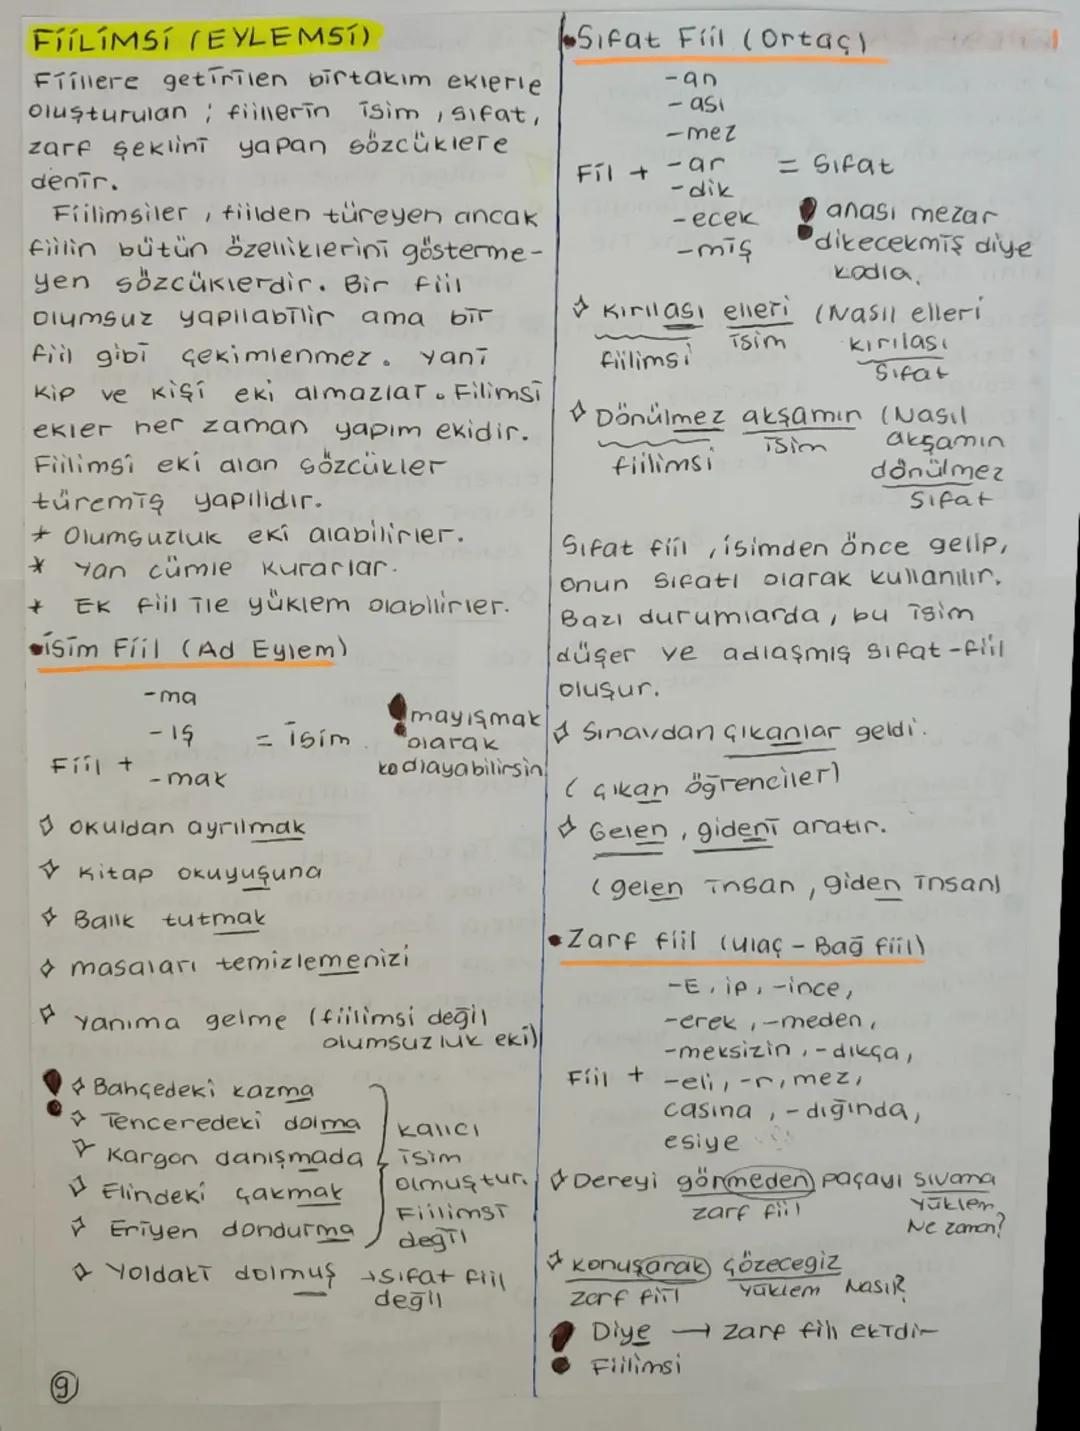 FİİLİMSİ (EYLEMSİ)
Fiillere getirilen birtakım eklerle
oluşturulan ; fiillerin isim , sıfat,
zarf şeklini yapan sözcüklere
denir.
Fiilimsiler , fiilden türeyen ancak
fiilin bütün özelliklerini gösterme-
yen sözcüklerdir. Bir fiil
olumsuz yapılabilir ama bir
fiil gibi çekimlenmez. Yani
kip ve kişi eki almazlar. Filimsi
ekler her zaman yapım ekidir.
Fiilimsi eki alan sözcükler
türemiş yapılıdır.
* Olumsuzluk eki alabilirler.
* Yan cümle kurarlar.
* Ek fiil ile yüklem olabilirler.
•İsim Fiil (Ad Eylem)
-ma
-ış
Fiil + -mak = isim
! mayışmak
olarak
kodlayabilirsin
okuldan ayrılmak
Kitap okuyuşuna
Balık tutmak
masaları temizlemenizi
Yanıma gelme (fiilimsi değil
olumsuzluk eki)
! Bahçedeki kazma
Tenceredeki dolma
Kargon danışmada
Elindeki çakmak
Eriyen dondurma
kalıcı
isim
olmuştur.
Fiilimsi
değil
Yoldaki dolmuş → sıfat fiil
değil
9
•Sıfat Fiil (Ortaç)
-an
-ası
-mez
Fiil + -ar = Sıfat
-dik
-ecek
-miş
! anası mezar
dikecekmiş diye
kodla.
Kırılası elleri (Nasıl elleri
fiilimsi isim kırılası
Sıfat
Dönülmez akşamın (Nasıl
fiilimsi isim akşamın
dönülmez
Sıfat
Sıfat fiil , isimden önce gelip,
onun sıfatı olarak kullanılır.
Bazı durumlarda , bu isim
düşer ve adlaşmış sıfat-fiil
oluşur.
Sınavdan çıkanlar geldi.
( çıkan öğrenciler)
Gelen , gideni aratır.
( gelen insan , giden insanı
•Zarf fiil (ulaç - Bağ fiil)
-E, ip, -ince,
-erek , -meden,
-meksizin , -dıkça,
Fiil + -eli, -r, mez,
casına , -dığında,
esiye
Dereyi görmeden paçayı sıvama
zarf fiil yüklem
Ne zaman?
Konuşarak çözeceğiz
zarf fiil yüklem Nasıl?
! Diye → zarf fiil ekidir
Fiilimsi